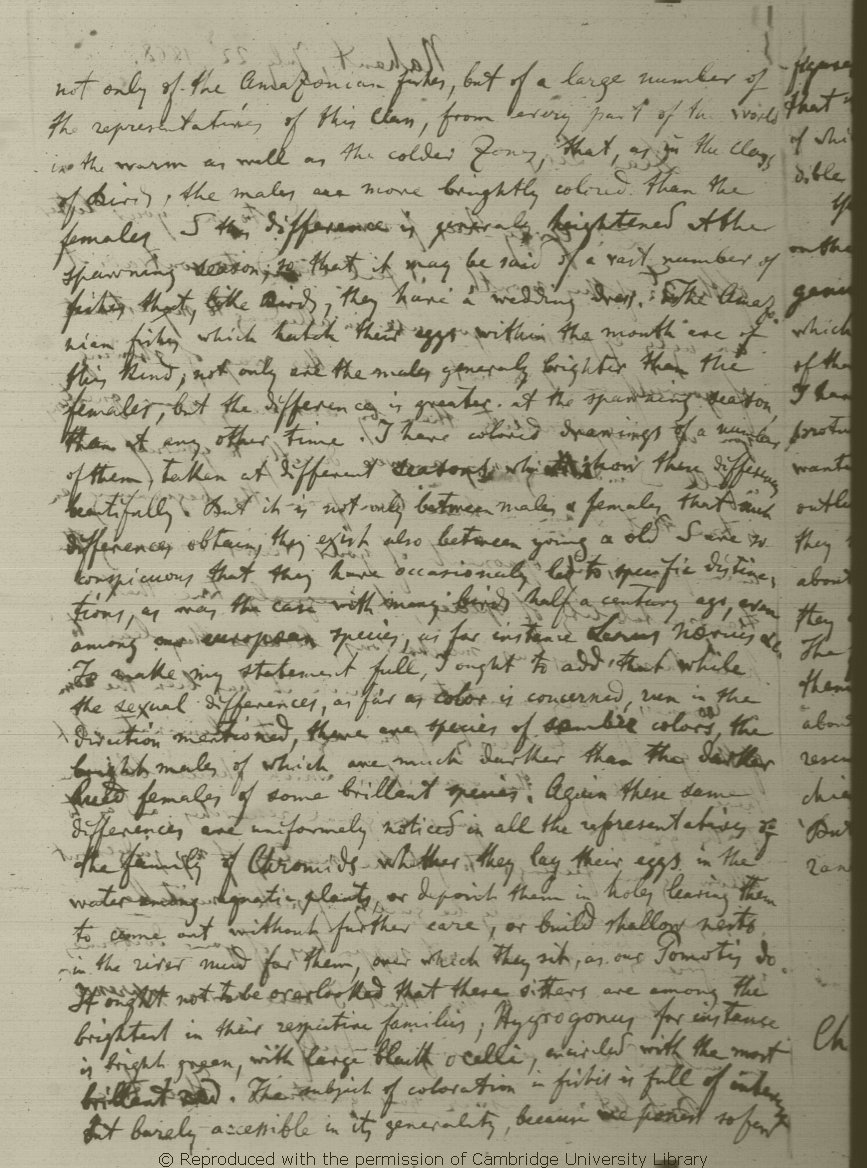 not only of the Amazonian fishes, but of a large number of
the representatives of this Class, from every part of the world
in the warm as well as the colder Zones, that, as in the Class
of Birds, the males are more brightly colored than the
females & this difference is generaly heightened at the
spawning season, so that it may be said of a vast number of
fishes that, like Birds, they have a wedding dress. The Amazo-
nian fishes which hatch their eggs within the mouth are of
this kind; not only are the males generaly brighter than the
females, but the difference is greater at the spawning season,
than at any other time. I have colored drawings of a number
of them, taken at different seasons which show these differences
beautifully. But it is not only between males & females that such
differences obtain, they exist also between young & old & are so
conspicuous that they have occasionaly led to specific distinc-
tions, as was the case with many birds half a century ago, even
among our european species, as for instance &c.
To make my statement full, I ought to add that while
the sexual differences, as far as color is concerned, run in the
direction mentioned, there are species of sombre colors, the
bright males of which are much darker than the darker
hued females of some brillant species. Again these same
differences are uniformely noticed in all the representatives of
the family of Chromids whether they lay their eggs in the
water among aquatic plants, or deposit them in holes leaving them
to come out without further care, or build shallow nests
in the river mud for them, over which they sit, as our Pomotis do.
It ought not to be overlooked that these sitters are among the
brightest in their respective families; Hygrogonus for instance
is bright green, with large black ocelli, encircled with the most
brillant red. The subject of coloration in fishes is full of interest
but barely accessible in its generality, because we possess so few
that
of whi
dible
on the
which
of tha
I hav
wante
they
about
they
The
them
about
But
Ch
© Reproduced with the permission of Cambridge University Library